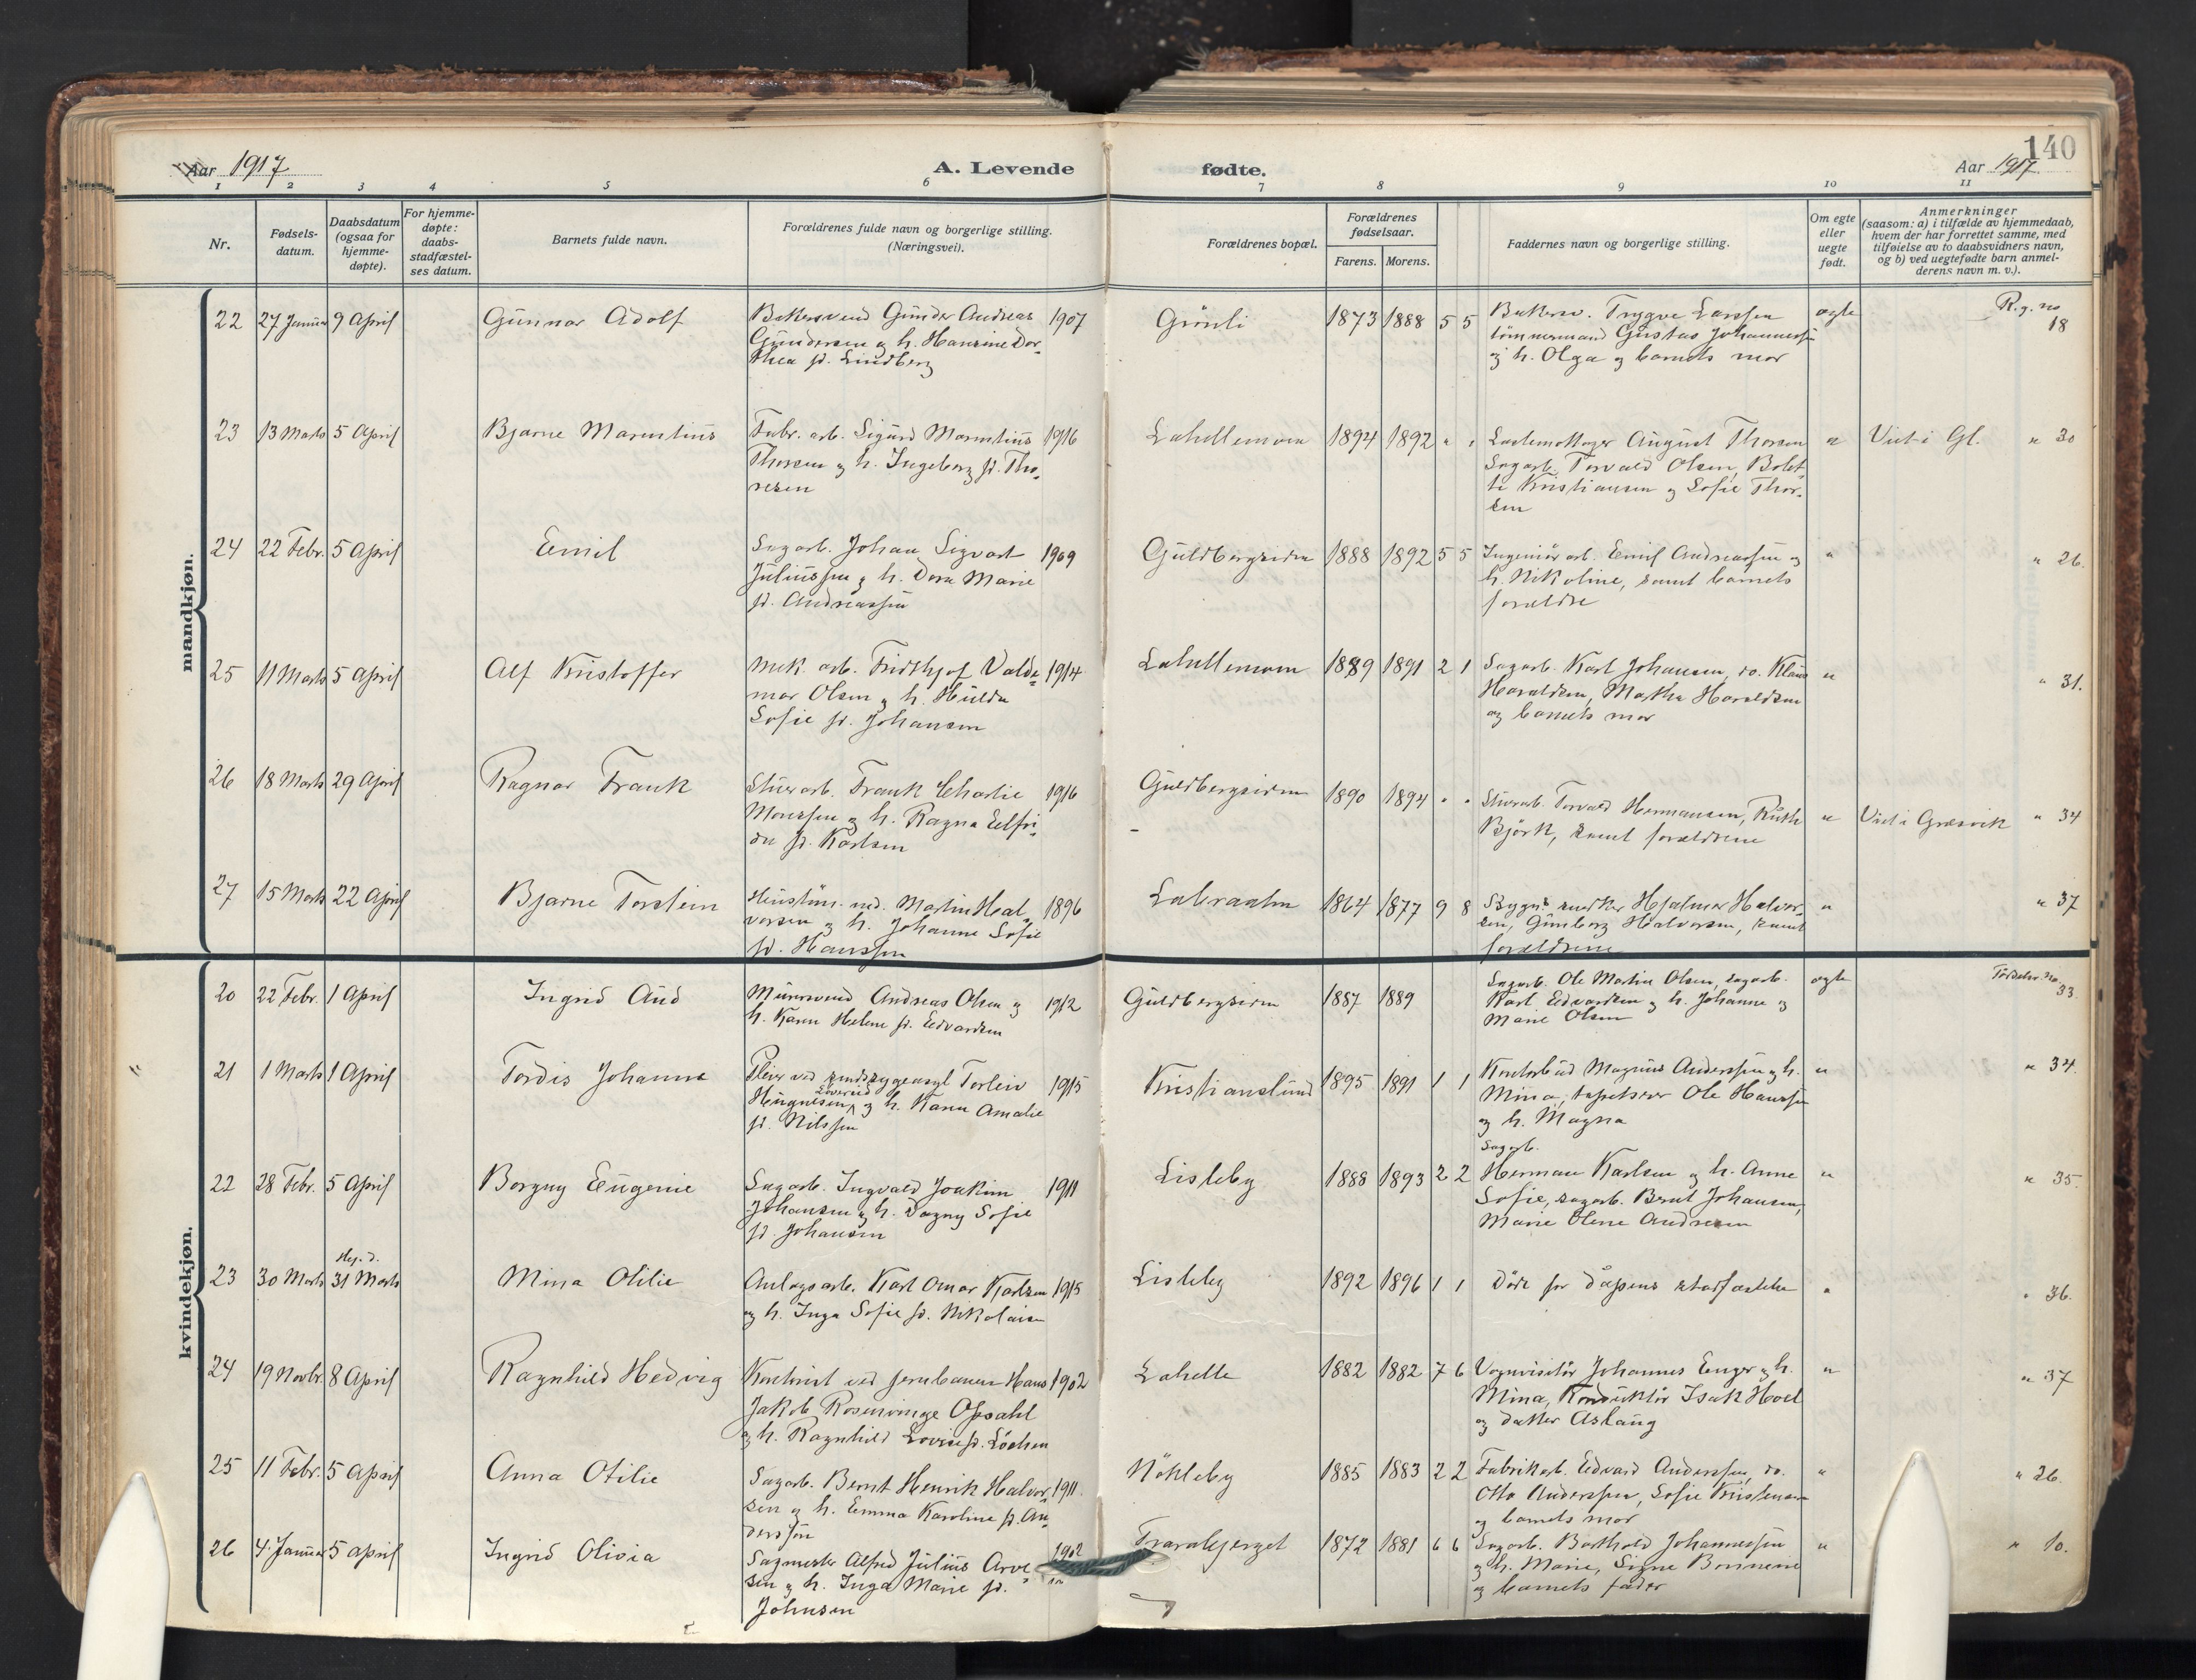 140
Aar 1917
A. Levende fødte.
Aar 1917
1 2 3 4 5 6 7 8 9 10 11
Nr.
Fødsels-
datum.
Daabsdatum
(ogsaa for
hjemme-
døpte).
For hjemme-
døpte:
daabs-
stadfæstel-
ses datum.
Barnets fulde navn.
Forældrenes fulde navn og borgerlige stilling.
(Næringsvei).
Forældrenes bopæl.
Forældrenes
fødselsaar.
Farens. Morens.
Faddernes navn og borgerlige stilling.
Om egte
eller
uegte
født.
Anmerkninger
(saasom: a) i tilfælde av hjemmedaab,
hvem der har forrettet samme, med
tilføielse av to daabsvidners navn,
og b) ved uegtefødte barn anmel-
derens navn m. v.).
mandkjøn.
22 27 Januar 9 April Gunnar Adolf
Bakersvend Gunder Andreas 1907
Gundersen og h. Hansine Dor-
thea f. Lindberg
Grönli 1873 1888 5 5
Bakersv. Trygve Larssen
tömmermand Gustav Johannessen
og h. Olga og barnets mor
egte
R. g. no
18
23 13 Marts 5 April Bjarne Marentius
Fabr. arb. Sigurd Marentius 1916
Thorsen og h. Ingeborg f. Tho-
resen
Lahellemoen 1894 1892 " "
Lastemottager August Thorsen
Sagarb. Torvald Olsen, Bolet-
te Kristiansen og Sofie Thor-
sen
" Viet i Gl. " 30
24 22 Febr. 5 April Emil
Sagarb. Johan Sigvart 1909
Juliussen og h. Dora Marie
f. Andreassen
Guldbergsiden 1888 1892 5 5
Ingeniörarb. Emil Andreassen og
h. Nikoline, samt barnets
forældre
" " 26.
25 11 Marts 5 April Alf Kristoffer
Mek. arb. Fridthjof Valde- 1914
mar Olsen og h. Hulda
Sofie f. Johansen
Lahellemoen 1889 1891 2 1
Sagarb. Karl Johansen, do. Klaus
Haraldsen, Martha Haraldsen
og barnets mor
" " 31.
26 18 Marts 29 April Ragnar Frank
Stuerarb. Frank Charlie 1916
Monssen og h. Ragna Elfri-
da f. Karlsen
Guldbergsiden 1890 1894 " "
Stuerarb. Torvald Hermansen, Ruth
Björk, samt forældrene
" Viet i Græsvik " 34
27 15 Marts 22 April Bjarne Torstein
Martin Hal- 1896
vorsen og h. Johanne Sofie
f. Hanssen
Labraaten 1864 1877 9 8
Bygn. snedker Hjalmar Halvor-
sen, Gunborg Halvorsen, samt
forældrene
" " 37
kvindekjøn.
20 22 Febr. 1 April Ingrid Aud
Mursvend Andreas Olsen og 1912
h. Karen Helene f. Edvardsen
Guldbergsiden 1887 1889
Sagarb. Ole Martin Olsen, sagarb.
Karl Edvardsen og h. Johanne og
Marie Olsen
egte
33.
21 1 Marts 1 April Tordis Johanne
Pleier ved sindssygeasyl Torleiv 1915
Hugnesen og h. Karen Amalie
f. Nilssen
Kristianslund 1895 1891 1 1
Kontorbud Magnus Anderssen og h.
Mina, tapetserer Ole Hanssen
og h. Magna
" " 34.
22 28 Febr. 5 April Borgny Eugenie
Sagarb. Ingvald Joakim 1911
Johansen og h. Dagny Sofie
f. Johansen
Lisleby 1888 1893 2 2
Sagarb.
Herman Karlsen og h. Anne
Sofie, sagarb. Bernt Johansen,
Marie Olene Andresen
" " 35.
Hj. d.
23 30 Marts 31 Marts Mina Otilie
Anlægsarb. Karl Omar Karlsen 1915
og h. Inga Sofie f. Nikolaisen
Lisleby 1892 1896 1 1
Döde før dåpens stadfæstelse
" " 36.
24 19 Novbr. 8 April Ragnhild Hedvig
Kontorist ved jernbanen Hans 1902
Jakob Rosenvinge Opsahl
og h. Ragnhild Lovise f. Löchen
Lahelle 1882 1882 7 6
Vognvisitör Johannes Enger og h.
Mina, Konduktör Isak Hoel
og datter Aslaug
" " 37
25 11 Febr. 5 April Anna Otilie
Sagarb. Bernt Henrik Halvor- 1911.
sen og h. Emma Karoline f. An-
derssen
Nökleby 1885 1883 2 2
Fabrikarb. Edvard Anderssen, do.
Otto Anderssen, Sofie Kristensen
og barnets mor
" " 26.
26 4. Januar 5 april Ingrid Olivia
Sagmester Alfred Julius Arve- 1902
sen og h. Inga Marie f.
Johnsen
Traraberget 1872 1881 6 6
Sagarb. Barthold Johannessen
og h. Marie, Signe
og barnets fader
" " 10.